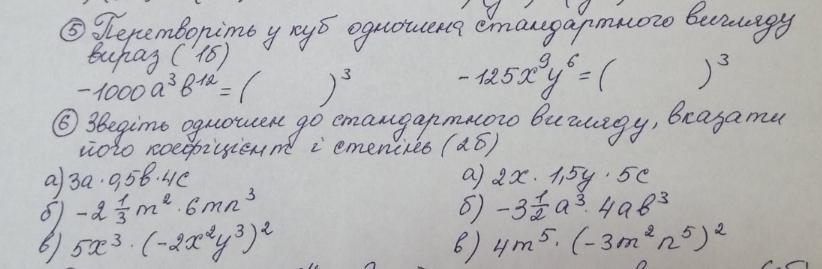 ⑤ Перетворіть у куб одночлена стандартного вигляду
вираз (1б)
-1000a³b¹² = (          )³          -125x⁹y⁶ = (          )³
⑥ Зведіть одночлен до стандартного вигляду, вказати
його коефіцієнт і степінь (2б)
а) 3a · 0,5b · 4c          а) 2x · 1,5y · 5c
б) -2 1/3 m² · 6mn³          б) -3 1/2 a³ · 4ab³
в) 5x³ · (-2x²y³)²          в) 4m⁵ · (-3m²n⁵)²